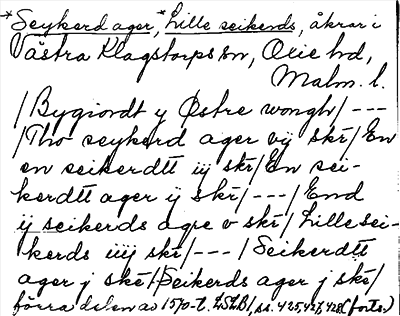 *Seykerd ager, *Lille seikerds, åkrar i
Västra Klagstorps sn, Oxie hd,
Malm. l.
/Bygiordt y Østre wongh/---
/Tho seykerd ager vij skr/En
en seikerdtt iij skr/En sei-
kerdtt ager ij skr/---/End
ij seikerds agre v skr/Lille sei-
kerds iiij skr/---/Seikerdtt
ager j skr/Seikerds ager j skr/
förra delen av 1570-t. LSLB1, ss. 425, 427, 428 (forts.)